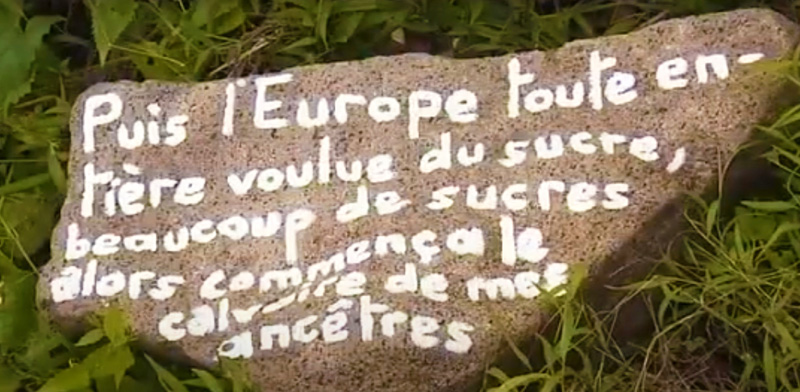 Puis l'Europe toute en-
tière voulue du sucre,
beaucoup de sucres
alors commença le
calvaire de mes
ancêtres